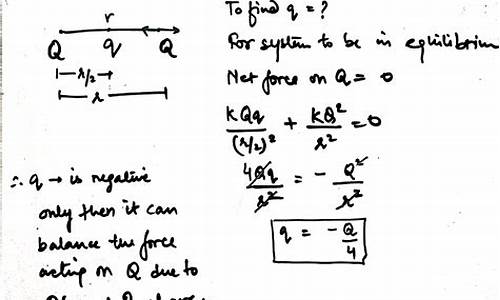 r
Q q Q
r/2
r
To find q = ?
For system to be in equilibrium
Net force on Q = 0
kQq/(r/2)² + kQ²/r² = 0
4Qq/r² = - Q²/r²
q = -Q/4
∴ q → is negative
only then it can
balance the force
acting on Q due to